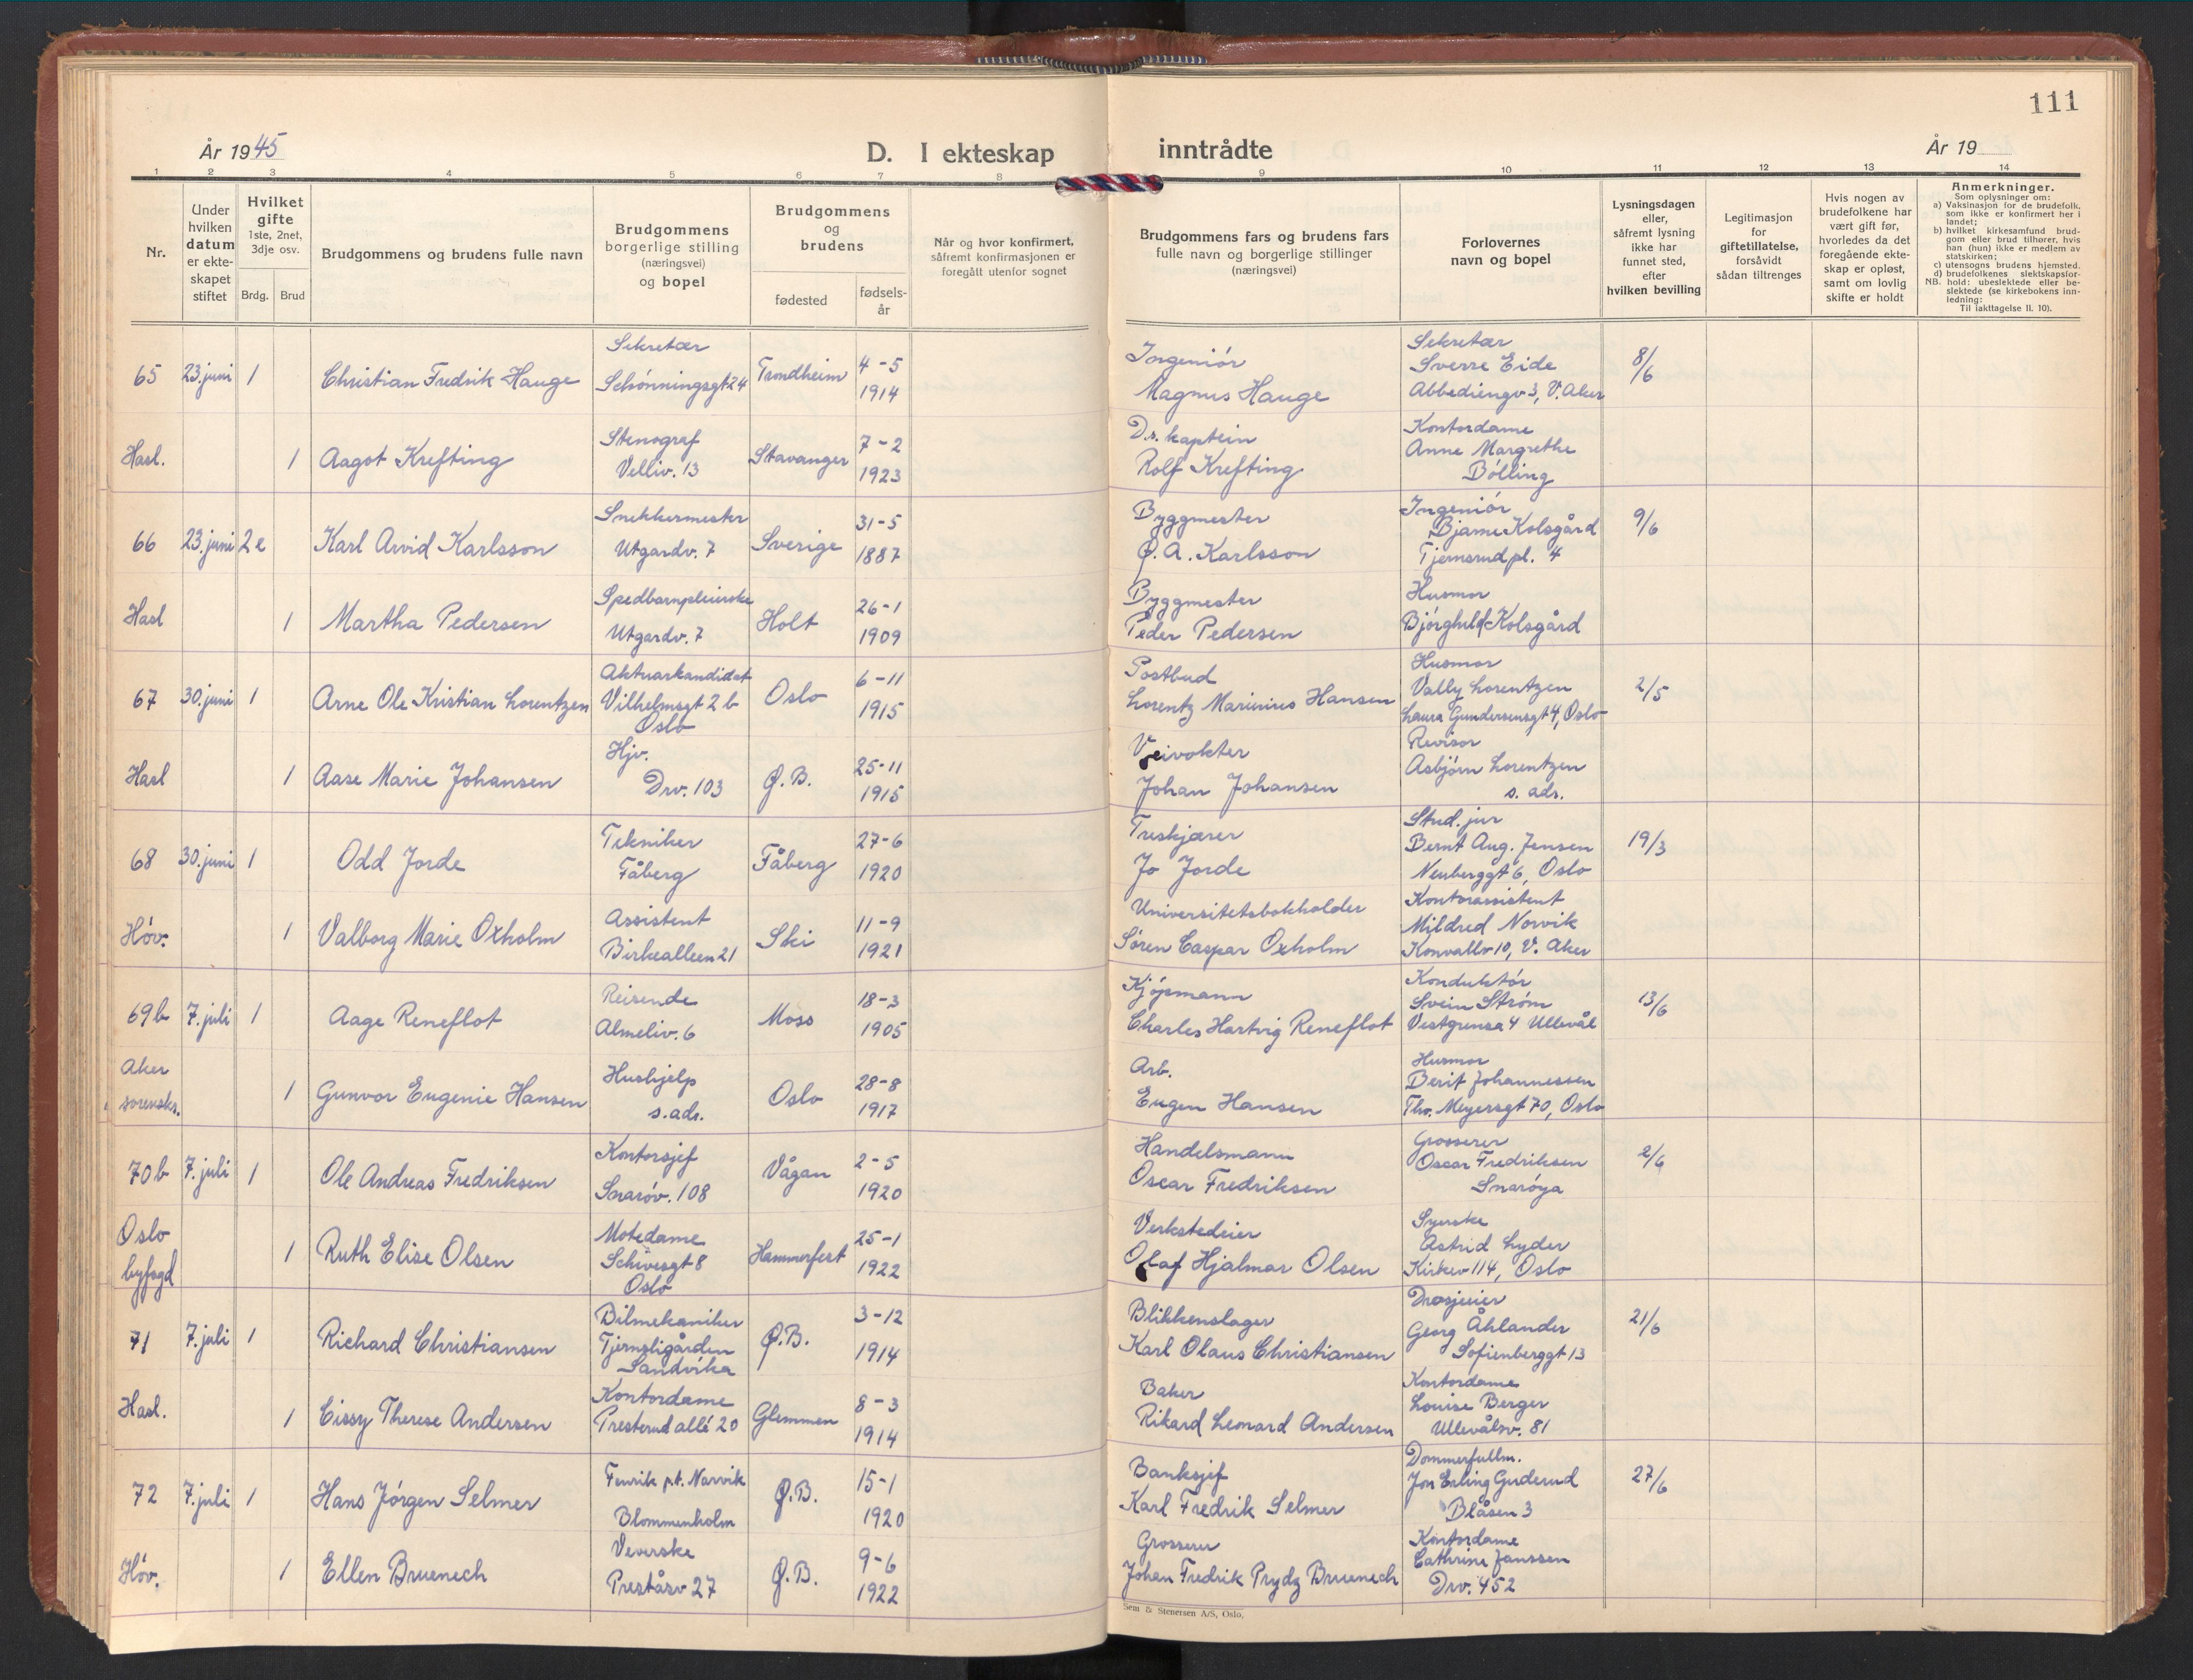 111
År 1945
D. I ekteskap inntrådte
År 19
1 2 3 4 5 6 7 8 9 10 11 12 13 14
Nr.
Under
hvilken
datum
er ekte-
skapet
stiftet
Hvilket
gifte
1ste, 2net,
3dje osv.
Brdg. Brud
Brudgommens og brudens fulle navn
Brudgommens
borgerlige stilling
(næringsvei)
og bopel
Brudgommens
og
brudens
fødested
fødsels-
år
Når og hvor konfirmert,
såfremt konfirmasjonen er
foregått utenfor sognet
Brudgommens fars og brudens fars
fulle navn og borgerlige stillinger
(næringsvei)
Forlovernes
navn og bopel
Lysningsdagen
eller,
såfremt lysning
ikke har
funnet sted,
efter
hvilken bevilling
Legitimasjon
for
giftetillatelse,
forsåvidt
sådan tiltrenges
Hvis nogen av
brudefolkene har
vært gift før,
hvorledes da det
foregående ekte-
skap er opløst,
samt om lovlig
skifte er holdt
Anmerkninger.
Som oplysninger om:
a) Vaksinasjon for de brudefolk,
som ikke er konfirmert her i
landet;
b) hvilket kirkesamfund brud-
gom eller brud tilhører, hvis
han (hun) ikke er medlem av
statskirken;
c) utensogns brudens hjemsted.
d) brudefolkenes slektskapsfor-
NB. hold: ubeslektede eller be-
slektede (se kirkebokens inn-
ledning:
Til iakttagelse II. 10).
65 23. juni 1 Christian Fredrik Hauge
Sekretær
Schønningsgt 24
Trondheim
4-5
1914
Ingeniør
Magnus Hauge
Sekretær
Sverre Eide
Abbediengv 3, V. Aker
8/6
Hasl. 1 Aagot Krefting
Stenograf
Velliv. 13
Stavanger
7-2
1923
D.s. kaptein
Rolf Krefting
Kontordame
Anne Margrethe
Bölling
66 23. juni 2e Karl Arvid Karlsson
Snekkermester
Utgardv. 7
Sverige
31-5
1887
Byggmester
O. A. Karlsson
Ingeniør
Bjarne Kolsgård
Tjernsrud pl. 4
9/6
Hasl 1 Martha Pedersen
Spedbarnpleierske
Utgardv. 7
Holt
26-1
1909
Byggmester
Peder Pedersen
Husmor
Bjørghild Kolsgård
67 30. juni 1 Arne Ole Kristian Lorentzen
Aktuarkandidat
Vilhelmsgt 2 b
Oslo
Oslo
6-11
1915
Postbud
Lorentz Marinius Hansen
Husmor
Vally Lorentzen
Laura Gundersensgt 4, Oslo
2/5
Hasl 1 Aase Marie Johansen
Hjv.
Drv. 103
Ø.B.
25-11
1915
Veivokter
Johan Johansen
Revisor
Asbjørn Lorentzen
s. ads.
68 30. juni 1 Odd Jorde
Tekniker
Fåberg
Fåberg
27-6
1920
Treskjærer
Jo Jorde
Stud. jur
Bernt Aug. Jensen
Neuberggt 6, Oslo
19/3
Høv. 1 Valborg Marie Oxholm
Assistent
Birkealleen 21
Ski
11-9
1921
Universitetsbokholder
Søren Caspar Oxholm
Kontorassistent
Mildred Norvik
Konvallv 10, V. Aker
69b 7. juli 1 Aage Reneflot
Reisende
Almeliv. 6
Moss
18-3
1905
Kjøpmann
Charles Hartvig Reneflot
Konduktør
Svein Strøm
Vestgrensa 4 Ullevål
13/6
Aker
sorensks. 1 Gunvor Eugenie Hansen
Hushjelp
s. ads.
Oslo
28-8
1917
Arb.
Eugen Hansen
Husmor
Berit Johannessen
Thv. Meyersgt 70, Oslo
70b 7. juli 1 Ole Andreas Fredriksen
Kontorsjef
Snarøv. 108
Vågan
2-5
1920
Handelsmann
Oscar Fredriksen
Grosserer
Oscar Fredriksen
Snarøya
2/6
Oslo
byfogd 1 Ruth Elise Olsen
Motedame
Schivesgt 8
Oslo
Hammerfest
25-1
1922
Verkstedeier
Olaf Hjalmar Olsen
Syerske
Astrid Lyder
Kirkev 114, Oslo
71 7. juli 1 Richard Christiansen
Bilmekaniker
Tjernsligården
Sandvika
Ø.B.
3-12
1914
Blikkenslager
Karl Olaus Christiansen
Drosjeeier
Georg Åhlander
Sofienberggt 13
21/6
Hasl. 1 Cissy Therese Andersen
Kontordame
Presterud allé 20
Glemmen
8-3
1914
Baker
Rikard Leonard Andersen
Kontordame
Louise Berger
Ullevålsv. 81
72 7. juli 1 Hans Jørgen Selmer
Fenrik p.t. Narvik
Blommenholm
Ø.B.
15-1
1920
Banksjef
Karl Fredrik Selmer
Dommerfullm.
Jon Erling Guderud
Blåsen 3
27/6
Høv. 1 Ellen Bruenech
Veverske
Preståsv 27
Ø.B.
9-6
1922
Grosserer
Johan Fredrik Prydz Bruenech
Kontordame
Cathrine Janssen
Drv. 452
Sem & Stenersen A/S, Oslo.